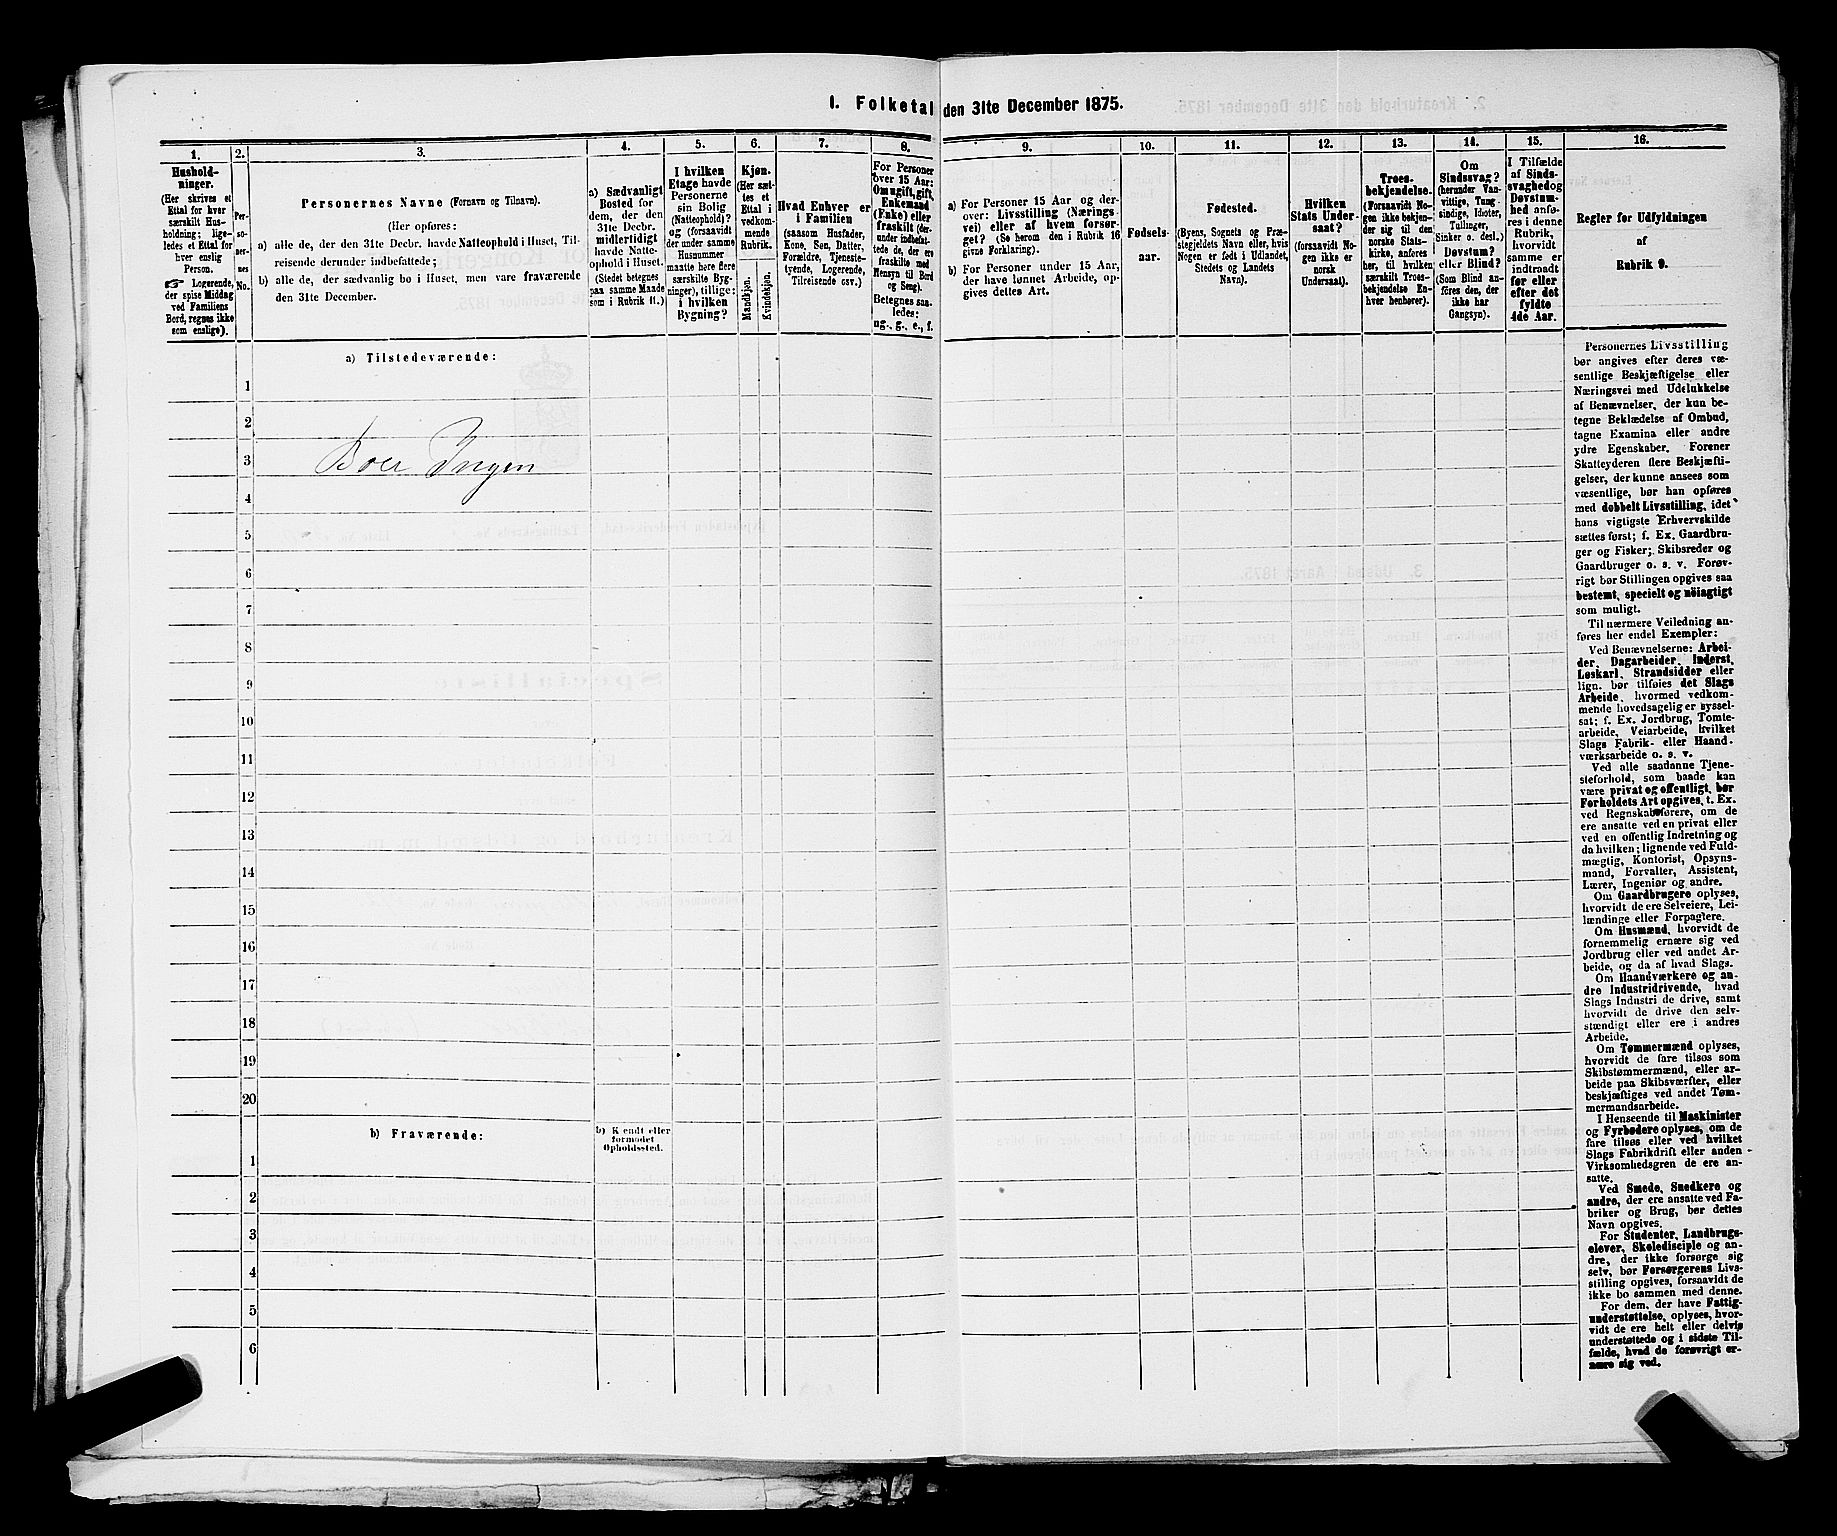 1. Folketal den 31te December 1875.
1.
Hushold-
ninger.
(Her skrives et
Ettal for hver
særskilt Hus-
holdning; lige-
ledes et Ettal for
hver enslig
Person.
Logerende,
der spise Middag
ved Familiens
Bord, regnes ikke
som enslige).
2.
Per-
so-
ner-
nes
No.
3.
Personernes Navne (Fornavn og Tilnavn).
(Her opføres:
a) alle de, der den 31te Decbr. havde Natteophold i Huset, Til-
reisende derunder indbefattede;
b) alle de, der sædvanlig bo i Huset, men vare fraværende
den 31te December.
4.
a) Sædvanligt
Bosted for
dem, der den
31te Decbr.
midlertidigt
havde Natte-
ophold i Huset.
(Stedet betegnes
paa samme Maade
som i Rubrik 11.)
5.
I hvilken
Etage havde
Personerne
sin Bolig
(Natteophold)?
og (forsaavidt
der under samme
Husnummer
maatte høre flere
særskilte Byg-
ninger), tillige:
i hvilken
Bygning?
6.
Kjøn.
(Her sæt-
tes et
Ettal i
vedkom-
mende
Rubrik.)
Mandkjøn.
Kvindekjøn.
7.
Hvad Enhver er
i Familien
(saasom Husfader,
Kone, Søn, Datter,
Forældre, Tjeneste-
tyende, Logerende,
Tilreisende csv.)
8.
For Personer
over 15 Aar:
Om ugift, gift,
Enkemand
(Enke) eller
fraskilt (der-
under indbefat-
tede de, der ere
fraskilte med
Hensyn til Bord
og Seng).
Betegnes saa-
ledes:
ug., g., e., f.
9.
a) For Personer 15 Aar og der-
over: Livsstilling (Nærings-
vei) eller af hvem forsør-
get? (Se herom den i Rubrik 16
givne Forklaring).
b) For Personer under 15 Aar,
der have lønnet Arbeide, op-
gives dettes Art.
10.
Fødsels-
aar.
11.
Fødested.
(Byens, Sognets og Præ-
stegjeldets Navn eller, hvis
Nogen er født i Udlandet,
Stedets og Landets
Navn).
12.
Hvilken
Stats Under-
saat?
(forsaavidt No-
gen ikke er
norsk
Undersaat).
13.
Troes-
bekjendelse.
(Forsaavidt No-
gen ikke bekjen-
der sig til den
norske Stats-
kirke, anføres
her, til hvilken
særskilt Troes-
bekjendelse En-
hver henhører).
14.
Om
Sindssvag?
(herunder Van-
vittige, Tung-
sindige, Idioter,
Tullinger,
Sinker o. desl.)
Døvstum?
eller Blind?
(Som Blind an-
føres den, der
ikke har
Gangsyn).
15.
I Tilfælde
af Sinds-
svaghed og
Døvstum-
hed anfø-
res i denne
Rubrik,
hvorvidt
samme er
indtraadt
før eller
efter det
fyldte
4de Aar.
16.
Regler for Udfyldningen
af
Rubrik 9.
a) Tilstedeværende:
1
2
3 Boer Ingen
4
5
6
7
8
9
10
11
12
13
14
15
16
17
18
19
20
b) Fraværende:
b) Kjendt eller
formodet
Opholdssted.
1
2
3
4
5
6
Personernes Livsstilling
bør angives efter deres væ-
sentlige Beskjæftigelse eller
Næringsvei med Udelukkelse
af Benævnelser, der kun be-
tegne Beklædelse af Ombud,
tagne Examina eller andre
ydre Egenskaber. Forener
Skatteyderen flere Beskjæfti-
gelser, der kunne ansees som
væsentlige, bør han opføres
med dobbelt Livsstilling, idet
hans vigtigste Erhvervskilde
sættes først; f. Ex. Gaardbru-
ger og Fisker; Skibsreder og
Gaardbruger o. s. v. Forøv-
rigt bør Stillingen opgives saa
bestemt, specielt og nöiagtigt
som muligt.
Til nærmere Veiledning an-
føres her endel Exempler:
Ved Benævnelserne: Arbei-
der, Dagarbeider, Inderst,
Løskarl, Strandsidder eller
lign. bør tilføies det Slags
Arbeide, hvormed vedkom-
mende hovedsagelig er syssel-
sat; f. Ex. Jordbrug, Tomte-
arbeide, Veiarbeide, hvilket
Slags Fabrik- eller Haand-
værksarbeide o. s. v.
Ved alle saadanne Tjene-
steforhold, som baade kan
være privat og offentligt, bør
Forholdets Art opgives, t. Ex.
ved Regnskabsførere, om de
ere ansatte ved en privat eller
ved en offentlig Indretning og
da hvilken; lignende ved Fuld-
mægtig, Kontorist, Opsyns-
mand, Forvalter, Assistent,
Lærer, Ingeniør og andre.
Om Gaardbrugere oplyses,
hvorvidt de ere Selveiere, Lei-
lændinge eller Forpagtere.
Om Husmænd, hvorvidt de
fornemmelig ernære sig ved
Jordbrug eller ved andet Ar-
beide, og da af hvad Slags.
Om Haandværkere og an-
dre Industridrivende, hvad
Slags Industri de drive, samt
hvorvidt de drive den selv-
stændigt eller ere i andres
Arbeide.
Om Tømmermænd oplyses,
hvorvidt de fare tilsøs som
Skibstømmermænd, eller ar-
beide paa Skibsværfter, eller
beskjæftiges ved andet Tøm-
mermandsarbeide.
I Henseende til Maskinister
og Fyrbødere oplyses, om de
fare tilsøs eller ved hvilket
Slags Fabrikdrift eller anden
Virksomhedsgren de ere an-
satte.
Ved Smede, Snedkere og
andre, der ere ansatte ved Fa-
briker og Brug, bør dettes
Navn opgives.
For Studenter, Landbrugs-
elever, Skoledisciple og an-
dre, der ikke forsørge sig
selv, bør Forsørgerens Livs-
stilling opgives, forsaavidt de
ikke bo sammen med denne.
For dem, der have Fattig-
understøttelse, oplyses, hvor-
vidt de ere helt eller delvis
understøttede og i sidste Til-
fælde, hvad de forøvrigt er-
nære sig ved.